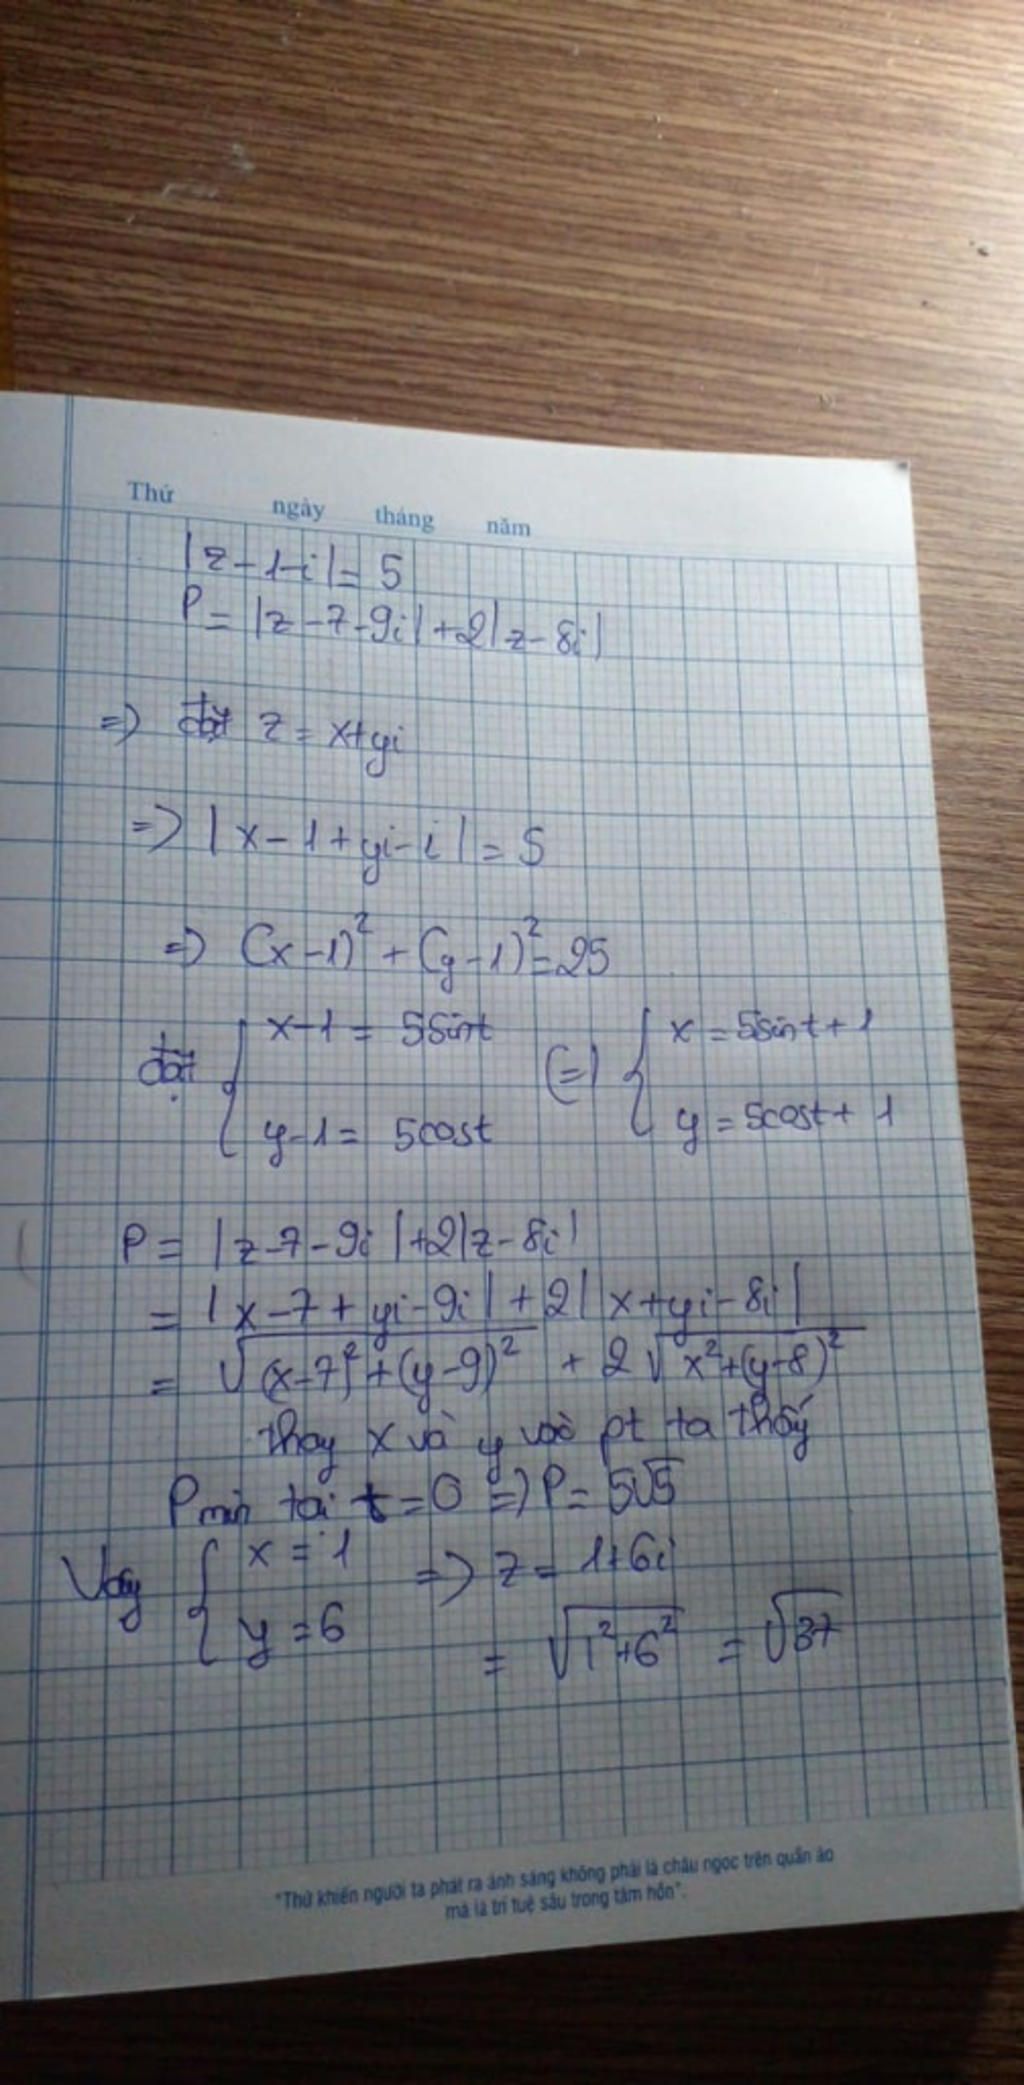 Thứ ngày tháng năm
|z-1-i| = 5
P = |z-7-9i| + 2|z-8i|
=> đặt z = x+yi
=> |x-1+yi-i| = 5
=> (x-1)² + (y-1)² = 25
đặt { x-1 = 5sint (=) { x = 5sint+1
y-1 = 5cost y = 5cost+1
P = |z-7-9i| + 2|z-8i|
= |x-7+yi-9i| + 2|x+yi-8i|
= √(x-7)²+(y-9)² + 2√x²+(y-8)²
thay x và y vào pt ta thấy
Pmin tại t=0 => P = 5√5
Vậy { x = 1 => z = 1+6i
y = 6 = √1²+6² = √37
"Thứ khiến người ta phát ra ánh sáng không phải là châu ngọc trên quần áo
mà là trí tuệ sâu trong tâm hồn".